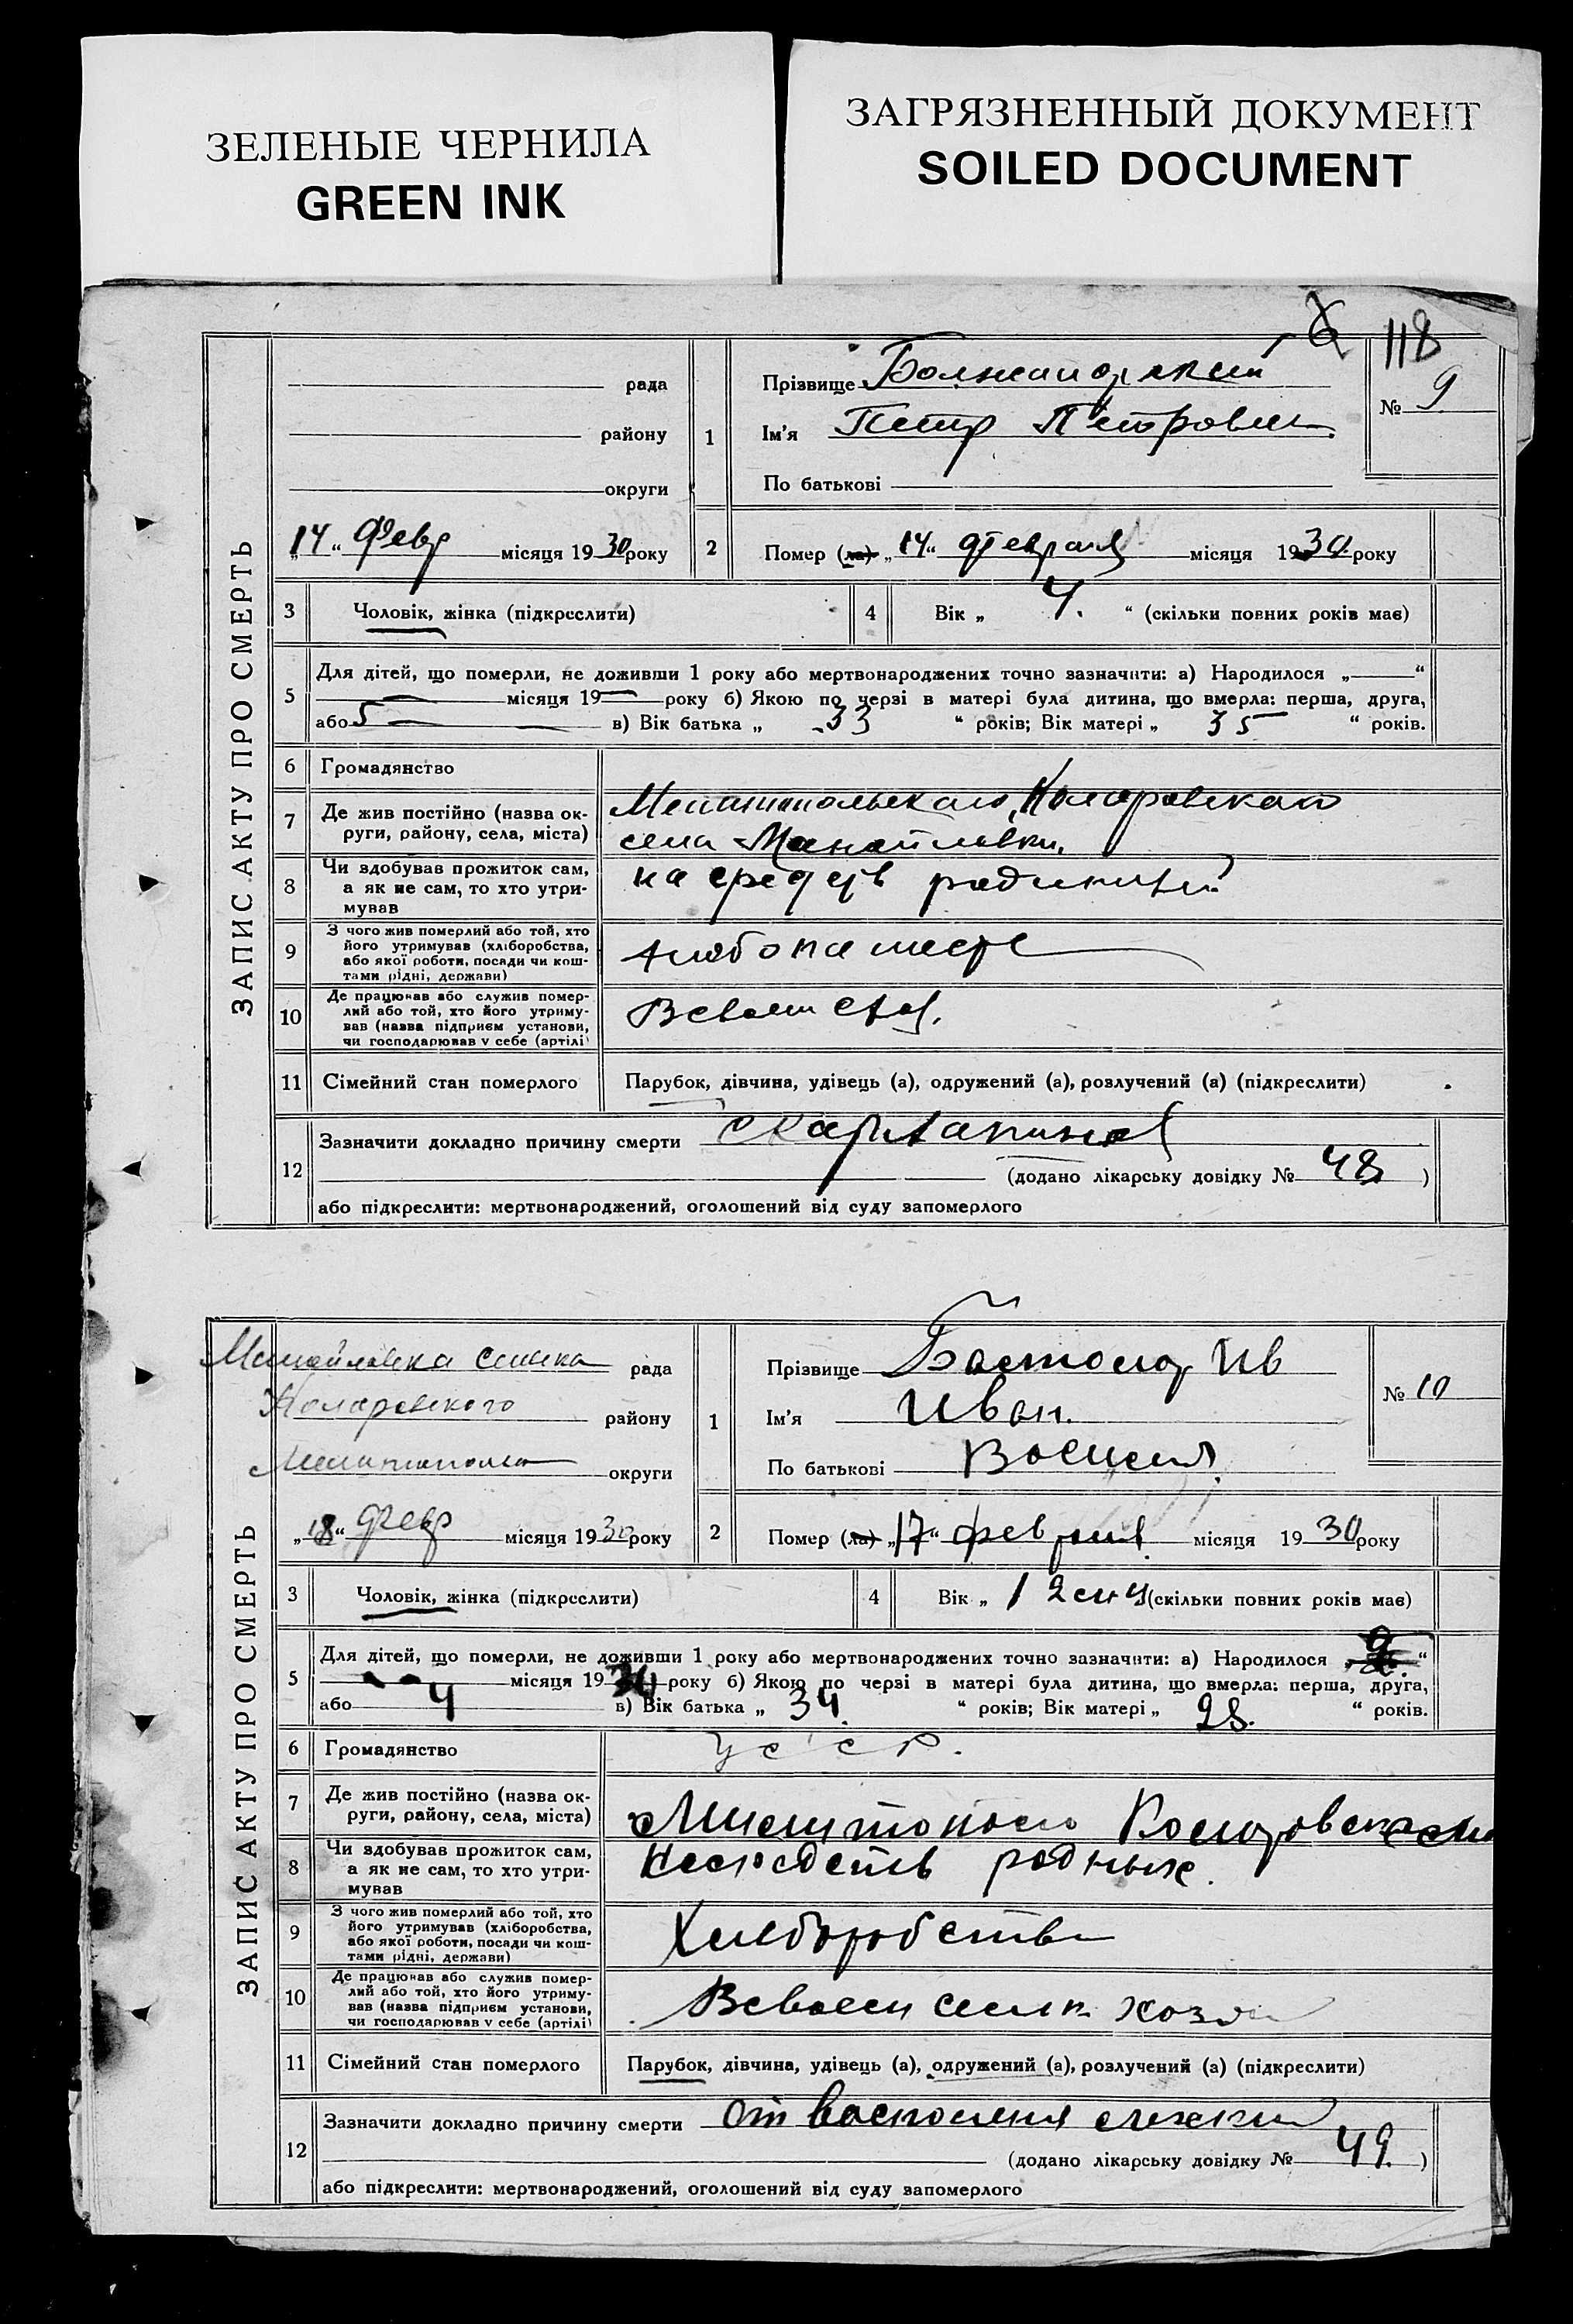 ЗЕЛЕНЫЕ ЧЕРНИЛА
GREEN INK
ЗАГРЯЗНЕННЫЙ ДОКУМЕНТ
SOILED DOCUMENT
118
ЗАПИС АКТУ ПРО СМЕРТЬ
рада
району
округи
„14“ Февр місяця 1930 року
1 Прізвище
Ім'я Петр Петрович
По батькові
№ 9
2 Помер (ла) „14“ февраля місяця 1930 року
3 Чоловік, жінка (підкреслити)
4 Вік „ 4. “ (скільки повних років має)
5 Для дітей, що померли, не доживши 1 року або мертвонароджених точно зазначити: а) Народилося „ “
місяця 19 року б) Якою по черзі в матері була дитина, що вмерла: перша, друга,
або 5 в) Вік батька „ 33 “ років; Вік матері „ 35 “ років.
6 Громадянство
7 Де жив постійно (назва округи, району, села, міста)
села
8 Чи здобував прожиток сам, а як не сам, то хто утримував
на средств родителей
9 З чого жив померлий або той, хто його утримував (хліборобства, або якої роботи, посади чи коштами рідні, держави)
10 Де працював або служив померлий або той, хто його утримував (назва підприєм установи, чи господарював у себе (артілі)
В своем
11 Сімейний стан померлого
Парубок, дівчина, удівець (а), одружений (а), розлучений (а) (підкреслити)
12 Зазначити докладно причину смерти скарлатина
(додано лікарську довідку № 48 )
або підкреслити: мертвонароджений, оголошений від суду запомерлого
ЗАПИС АКТУ ПРО СМЕРТЬ
рада
району
округи
„18“ Февр місяця 1930 року
1 Прізвище
Ім'я Иван.
По батькові Васильев.
№ 10
2 Помер (ла) „17“ февраля місяця 1930 року
3 Чоловік, жінка (підкреслити)
4 Вік „ 1 (скільки повних років має)
5 Для дітей, що померли, не доживши 1 року або мертвонароджених точно зазначити: а) Народилося „ “
місяця 19 року б) Якою по черзі в матері була дитина, що вмерла: перша, друга,
або 4 в) Вік батька „ 34. “ років; Вік матері „ 28. “ років.
6 Громадянство УССР.
7 Де жив постійно (назва округи, району, села, міста)
8 Чи здобував прожиток сам, а як не сам, то хто утримував
На средств родных.
9 З чого жив померлий або той, хто його утримував (хліборобства, або якої роботи, посади чи коштами рідні, держави)
Хлеборобства
10 Де працював або служив померлий або той, хто його утримував (назва підприєм установи, чи господарював у себе (артілі)
В своем сельк. хозя
11 Сімейний стан померлого
Парубок, дівчина, удівець (а), одружений (а), розлучений (а) (підкреслити)
12 Зазначити докладно причину смерти от
(додано лікарську довідку № 49. )
або підкреслити: мертвонароджений, оголошений від суду запомерлого